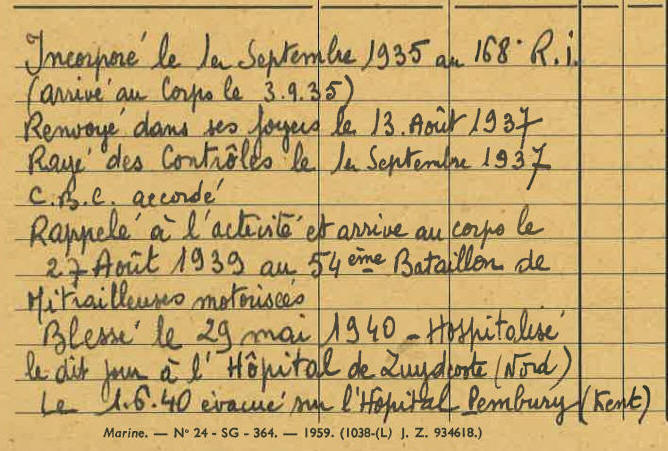 Incorporé le 1er Septembre 1935 au 168e R.i.
(arrivé au Corps le 3.9.35)
Renvoyé dans ses foyers le 13. Août 1937
Rayé des Contrôles le 1er Septembre 1937
C.B.C. accordé
Rappelé à l'activité et arrive au corps le
27 Août 1939 au 54ème Bataillon de
Mitrailleuses motorisées
Blessé le 29 mai 1940 - Hospitalisé
le dit jour à l'Hôpital de Zuydcoote (Nord)
Le 1.6.40 évacué sur l'Hôpital Pembury (Kent)
Marine. — N° 24 - SG - 364. — 1959. (1038-(L) J. Z. 934618.)